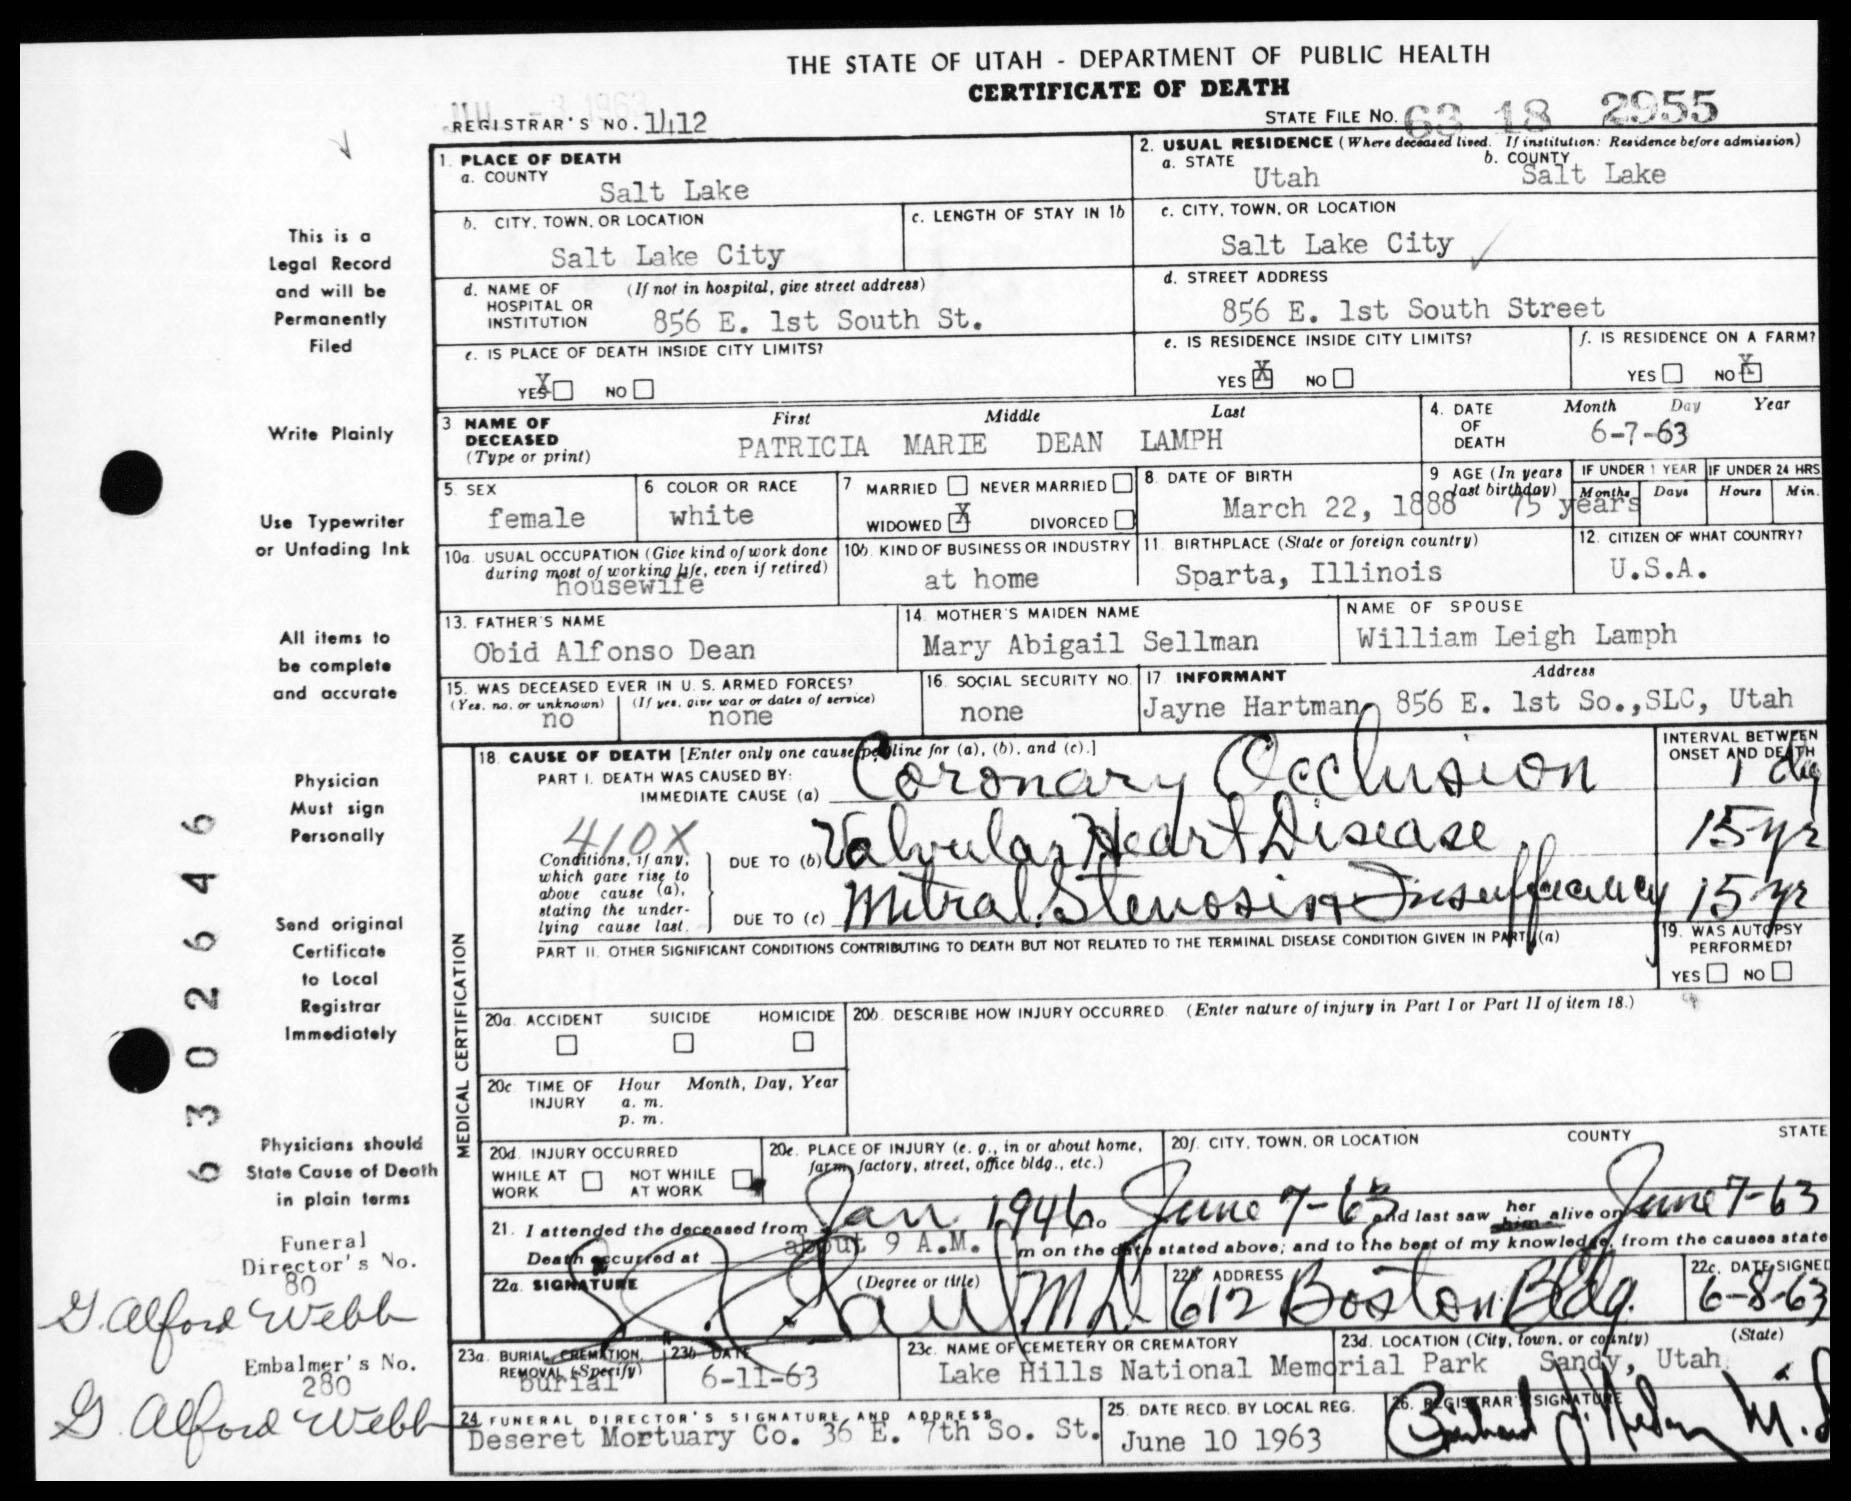 THE STATE OF UTAH - DEPARTMENT OF PUBLIC HEALTH
CERTIFICATE OF DEATH
REGISTRAR'S NO. 1412
STATE FILE NO. 63 18 2955
1. PLACE OF DEATH
a. COUNTY
Salt Lake
2. USUAL RESIDENCE (Where deceased lived. If institution: Residence before admission)
a. STATE Utah b. COUNTY Salt Lake
b. CITY, TOWN, OR LOCATION
Salt Lake City
c. LENGTH OF STAY IN 1b
c. CITY, TOWN, OR LOCATION
Salt Lake City
d. NAME OF HOSPITAL OR INSTITUTION (If not in hospital, give street address)
856 E. 1st South St.
d. STREET ADDRESS
856 E. 1st South Street
e. IS PLACE OF DEATH INSIDE CITY LIMITS?
YES X NO
e. IS RESIDENCE INSIDE CITY LIMITS?
YES X NO
f. IS RESIDENCE ON A FARM?
YES NO X
3 NAME OF DECEASED (Type or print)
First Middle Last
PATRICIA MARIE DEAN LAMPH
4. DATE OF DEATH Month Day Year
6-7-63
5. SEX
female
6 COLOR OR RACE
white
7 MARRIED NEVER MARRIED
WIDOWED X DIVORCED
8. DATE OF BIRTH
March 22, 1888
9 AGE (In years last birthday)
75 years
IF UNDER 1 YEAR
Months Days
IF UNDER 24 HRS
Hours Min.
10a. USUAL OCCUPATION (Give kind of work done during most of working life, even if retired)
housewife
10b. KIND OF BUSINESS OR INDUSTRY
at home
11. BIRTHPLACE (State or foreign country)
Sparta, Illinois
12. CITIZEN OF WHAT COUNTRY?
U.S.A.
13. FATHER'S NAME
Obid Alfonso Dean
14. MOTHER'S MAIDEN NAME
Mary Abigail Sellman
NAME OF SPOUSE
William Leigh Lamph
15. WAS DECEASED EVER IN U. S. ARMED FORCES?
(Yes, no, or unknown) (If yes, give war or dates of service)
no none
16. SOCIAL SECURITY NO.
none
17. INFORMANT Address
Jayne Hartman, 856 E. 1st So.,SLC, Utah
MEDICAL CERTIFICATION
18. CAUSE OF DEATH [Enter only one cause per line for (a), (b), and (c).]
PART I. DEATH WAS CAUSED BY:
IMMEDIATE CAUSE (a) Coronary Occlusion
INTERVAL BETWEEN ONSET AND DEATH
1 day
410X
Conditions, if any, which gave rise to above cause (a), stating the underlying cause last.
DUE TO (b) Valvular Heart Disease 15 yr
DUE TO (c) Mitral Stenosis + Insufficiency 15 yr
PART II. OTHER SIGNIFICANT CONDITIONS CONTRIBUTING TO DEATH BUT NOT RELATED TO THE TERMINAL DISEASE CONDITION GIVEN IN PART I (a)
19. WAS AUTOPSY PERFORMED?
YES NO
20a. ACCIDENT SUICIDE HOMICIDE
20b. DESCRIBE HOW INJURY OCCURRED. (Enter nature of injury in Part I or Part II of item 18.)
20c. TIME OF INJURY Hour Month, Day, Year
a. m.
p. m.
20d. INJURY OCCURRED
WHILE AT WORK NOT WHILE AT WORK
20e. PLACE OF INJURY (e. g., in or about home, farm, factory, street, office bldg., etc.)
20f. CITY, TOWN, OR LOCATION COUNTY STATE
21. I attended the deceased from Jan 1946 to June 7-63 and last saw her him alive on June 7-63
Death occurred at about 9 A.M. m on the date stated above; and to the best of my knowledge, from the causes state
22a. SIGNATURE (Degree or title) M.D.
22b. ADDRESS
612 Boston Bldg.
22c. DATE SIGNED
6-8-63
23a. BURIAL, CREMATION, REMOVAL (Specify)
burial
23b. DATE
6-11-63
23c. NAME OF CEMETERY OR CREMATORY
Lake Hills National Memorial Park
23d. LOCATION (City, town, or county) (State)
Sandy, Utah
24 FUNERAL DIRECTOR'S SIGNATURE AND ADDRESS
Deseret Mortuary Co. 36 E. 7th So. St.
25. DATE RECD. BY LOCAL REG.
June 10 1963
26. REGISTRAR'S SIGNATURE
This is a
Legal Record
and will be
Permanently
Filed
Write Plainly
Use Typewriter
or Unfading Ink
All items to
be complete
and accurate
Physician
Must sign
Personally
Send original
Certificate
to Local
Registrar
Immediately
Physicians should
State Cause of Death
in plain terms
6302646
Funeral
Director's No.
80
G. Alford Webb
Embalmer's No.
280
G. Alford Webb